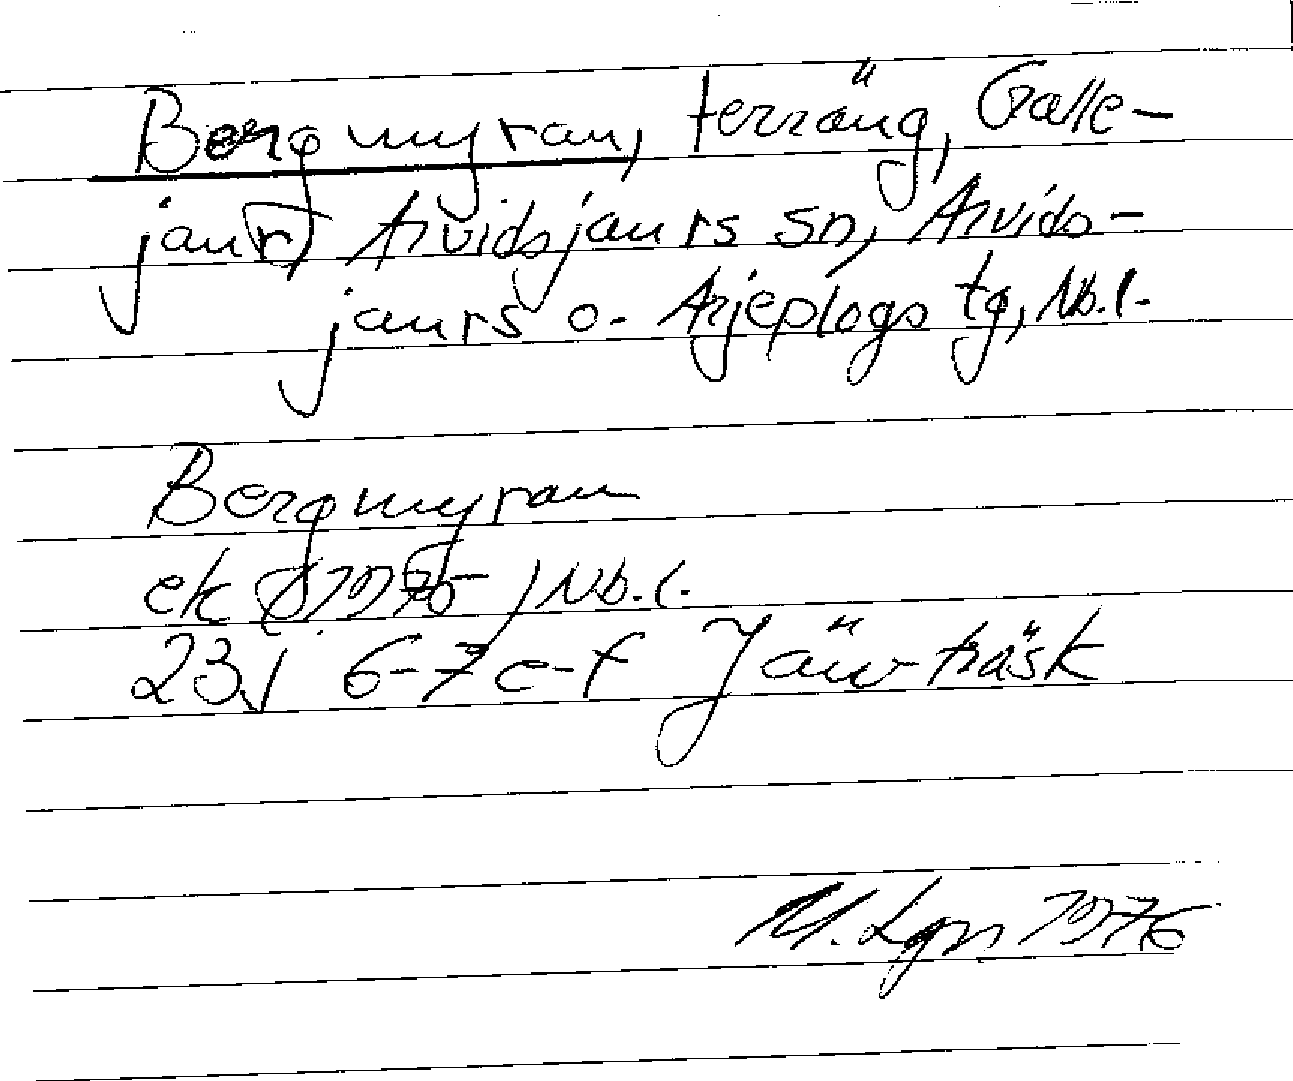 Bergmyran, terräng, Galle-
jaur, Arvidsjaurs sn, Arvids-
jaurs o. Arjeplogs tg, Nb.l.
Bergmyran
ek 1975, Nb.l.
23J 6-7 e-f Jäwträsk
M. Lgn 1976